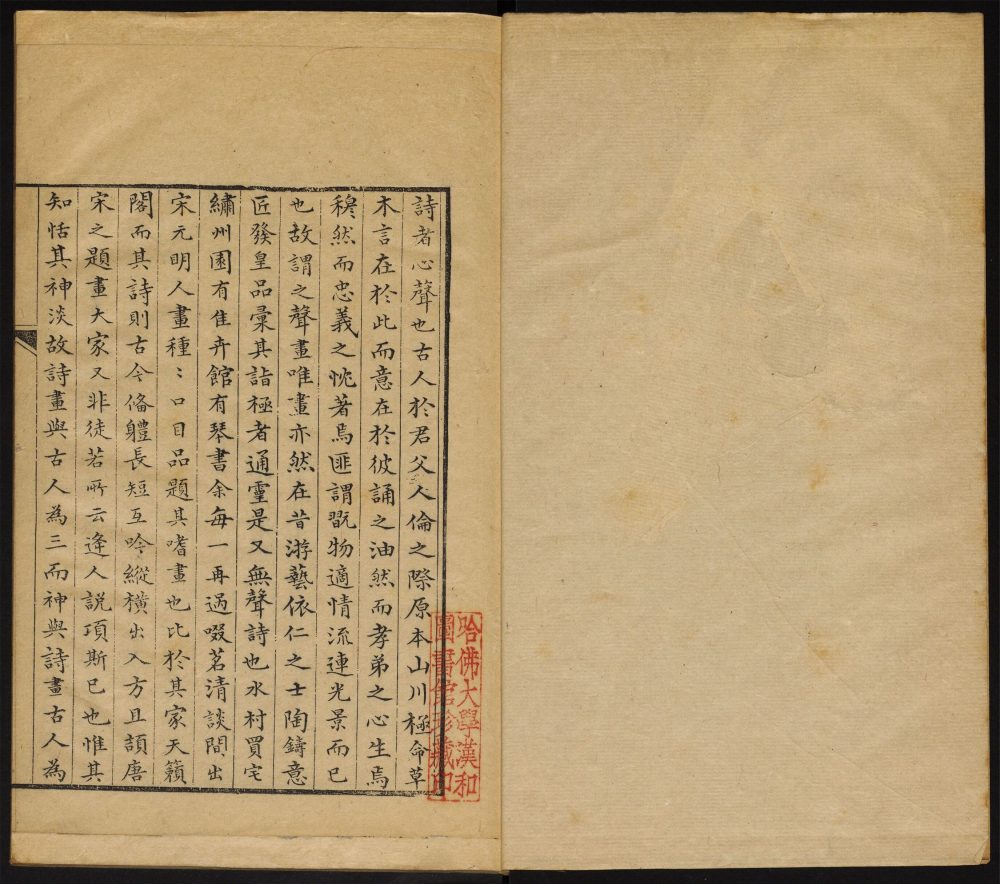 詩者心聲也古人於君父人倫之際原本山川極命草
木言在於此而意在於彼誦之油然而孝弟之心生焉
穆然而忠義之忱著焉匪謂翫物適情流連光景而已
也故謂之聲畫唯畫亦然在昔游藝依仁之士陶鑄意
匠發皇品彙其詣極者通靈是又無聲詩也水村買宅
繡州園有隹卉館有琴書余每一再過啜茗清談間出
宋元明人畫種〻口目品題其嗜畫也比於其家天籟
閣而其詩則古今俻軆長短互吟縱橫出入方且頡唐
宋之題畫大家又非徒若所云逢人説項斯已也惟其
知恬其神淡故詩畫與古人為三而神與詩畫古人為
哈佛大學漢和
圖書館珍藏印